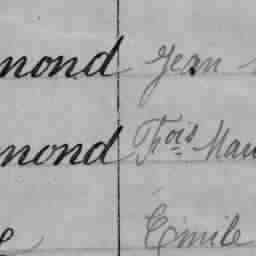 mond Jean
mond Fois Mau
e Emile